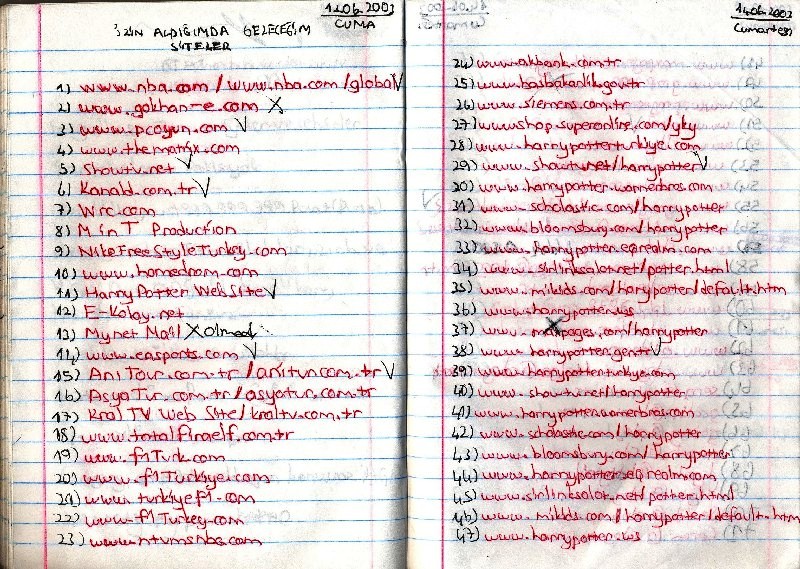 12.06.2003
CUMA
İZİN ALDIĞIMDA GELECEĞİM
SİTELER
1) www.nba.com / www.nba.com/global
2) www.gokhan-e.com X
3) www.pcoyun.com
4) www.thematrix.com
5) Showtv.net
6) Kanald.com.tr
7) Wrc.com
8) M in T Production
9) NikeFreeStyleTurkey.com
10) www.homedrom.com
11) Harry Potter Web Site
12) E-Kolay.net
13) Mynet Mail X Olmadı
14) www.easports.com
15) AniTour.com.tr / anitur.com.tr
16) AsyaTur.com.tr / asyatur.com.tr
17) Kral TV Web Site / kraltv.com.tr
18) www.totalfinaelf.com.tr
19) www.f1Turk.com
20) www.f1Turkiye.com
21) www.turkiyef1.com
22) www.f1Turkey.com
23) www.ntvmsnbc.com
14.06.2003
Cumartesi
24) www.akbank.com.tr
25) www.basbakanlik.gov.tr
26) www.siemens.com.tr
27) www.shop.superonline.com/yky
28) www.harrypotterturkiye.com
29) www.showtv.net/harrypotter
30) www.harrypotter.warnerbros.com
31) www.scholastic.com/harrypotter
32) www.bloomsbury.com/harrypotter
33) www.harrypotter.eqrealm.com
34) www.sirlinksalot.net/potter.html
35) www.mikids.com/harrypotter/default.htm
36) www.harrypotter.ws
37) www.maxpages.com/harrypotter
38) www.harrypotter.gen.tr
39) www.harrypotterturkiye.com
40) www.showtv.net/harrypotter
41) www.harrypotter.warnerbros.com
42) www.scholastic.com/harrypotter
43) www.bloomsbury.com/harrypotter
44) www.harrypotter.eqrealm.com
45) www.sirlinksalot.net/potter.html
46) www.mikids.com/harrypotter/default.htm
47) www.harrypotter.ws